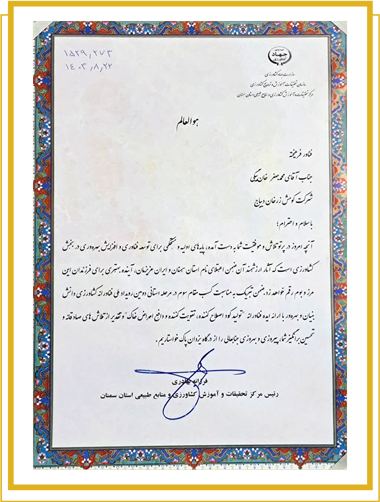 ۱۵۲۹,۲۷۳
۱۴۰۳,۸,۲۲
جهاد
وزارت جهاد کشاورزی
سازمان تحقیقات، آموزش و ترویج کشاورزی
مرکز تحقیقات و آموزش کشاورزی و منابع طبیعی استان سمنان
هوالعالم
فناور فرهیخته
جناب آقای محمدجعفر خان بیگی
شرکت کومش زرخان دیباج
با سلام و احترام؛
آنچه امروز در پرتو تلاش و موفقیت شما به دست آمده، پایه‌های اولیه و مستحکمی برای توسعه فناوری و افزایش بهره‌وری در بخش
کشاورزی است که آثار ارزشمند آن ضمن اعتلای نام استان سمنان و ایران عزیزمان، آینده بهتری برای فرزندان این
مرز و بوم رقم خواهد زد. ضمن تبریک به مناسبت کسب مقام سوم در مرحله استانی دومین رویداد ملی فناورانه کشاورزی دانش
بنیان و بهره‌ور با ارائه ایده فناورانه "تولید کود اصلاح کننده، تقویت کننده و دافع امراض خاک" و تقدیر از تلاش های صادقانه و
تحسین برانگیز شما، پیروزی و بهروزی جنابعالی را از درگاه یزدان پاک خواستاریم.
رئیس مرکز تحقیقات و آموزش کشاورزی و منابع طبیعی استان سمنان